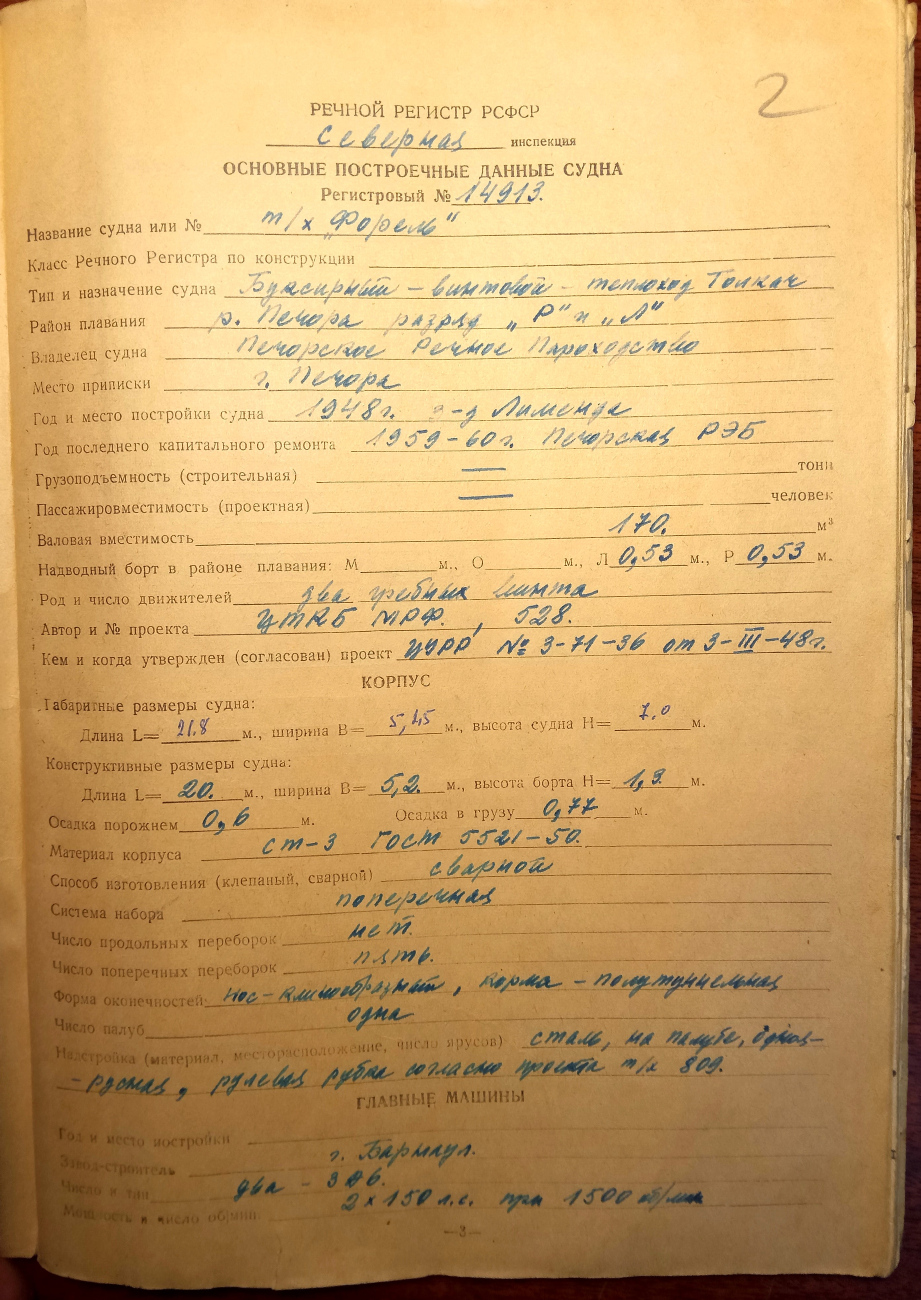 2
РЕЧНОЙ РЕГИСТР РСФСР
Северная инспекция
ОСНОВНЫЕ ПОСТРОЕЧНЫЕ ДАННЫЕ СУДНА
Регистровый № 14913.
Название судна или № т/х „Форель"
Класс Речного Регистра по конструкции
Тип и назначение судна Буксирный – винтовой – теплоход Толкач
Район плавания р. Печора разряд „Р" и „Л"
Владелец судна Печорское Речное Пароходство
Место приписки г. Печора
Год и место постройки судна 1948г. з-д Лименда
Год последнего капитального ремонта 1959-60г. Печорская РЭБ
Грузоподъемность (строительная) — тонн
Пассажировместимость (проектная) — человек
Валовая вместимость 170. м³
Надводный борт в районе плавания: М м., О м., Л 0,53 м., Р 0,53 м.
Род и число движителей два гребных винта
Автор и № проекта ЦТКБ МРФ., 528.
Кем и когда утвержден (согласован) проект ЦУРР № 3-71-36 от 3-III-48г.
КОРПУС
Габаритные размеры судна:
Длина L= 21.8 м., ширина B= 5,45 м., высота судна H= 7.0 м.
Конструктивные размеры судна:
Длина L= 20. м., ширина B= 5,2. м., высота борта H= 1,3. м.
Осадка порожнем 0,6 м. Осадка в грузу 0,77 м.
Материал корпуса ст-3 ГОСТ 5521-50.
Способ изготовления (клепаный, сварной) сварной
Система набора поперечная
Число продольных переборок нет.
Число поперечных переборок пять.
Форма оконечностей: нос-клинообразный, корма – полутуннельная
Число палуб одна
Надстройка (материал, месторасположение, число ярусов) сталь, на палубе, одноя-
-русная, рулевая рубка согласно проекта т/х 809.
ГЛАВНЫЕ МАШИНЫ
Год и место постройки
Завод-строитель г. Барнаул.
Число и тип два – 3Д6.
Мощность и число об/мин. 2×150 л.с. при 1500 об/мин
—3—